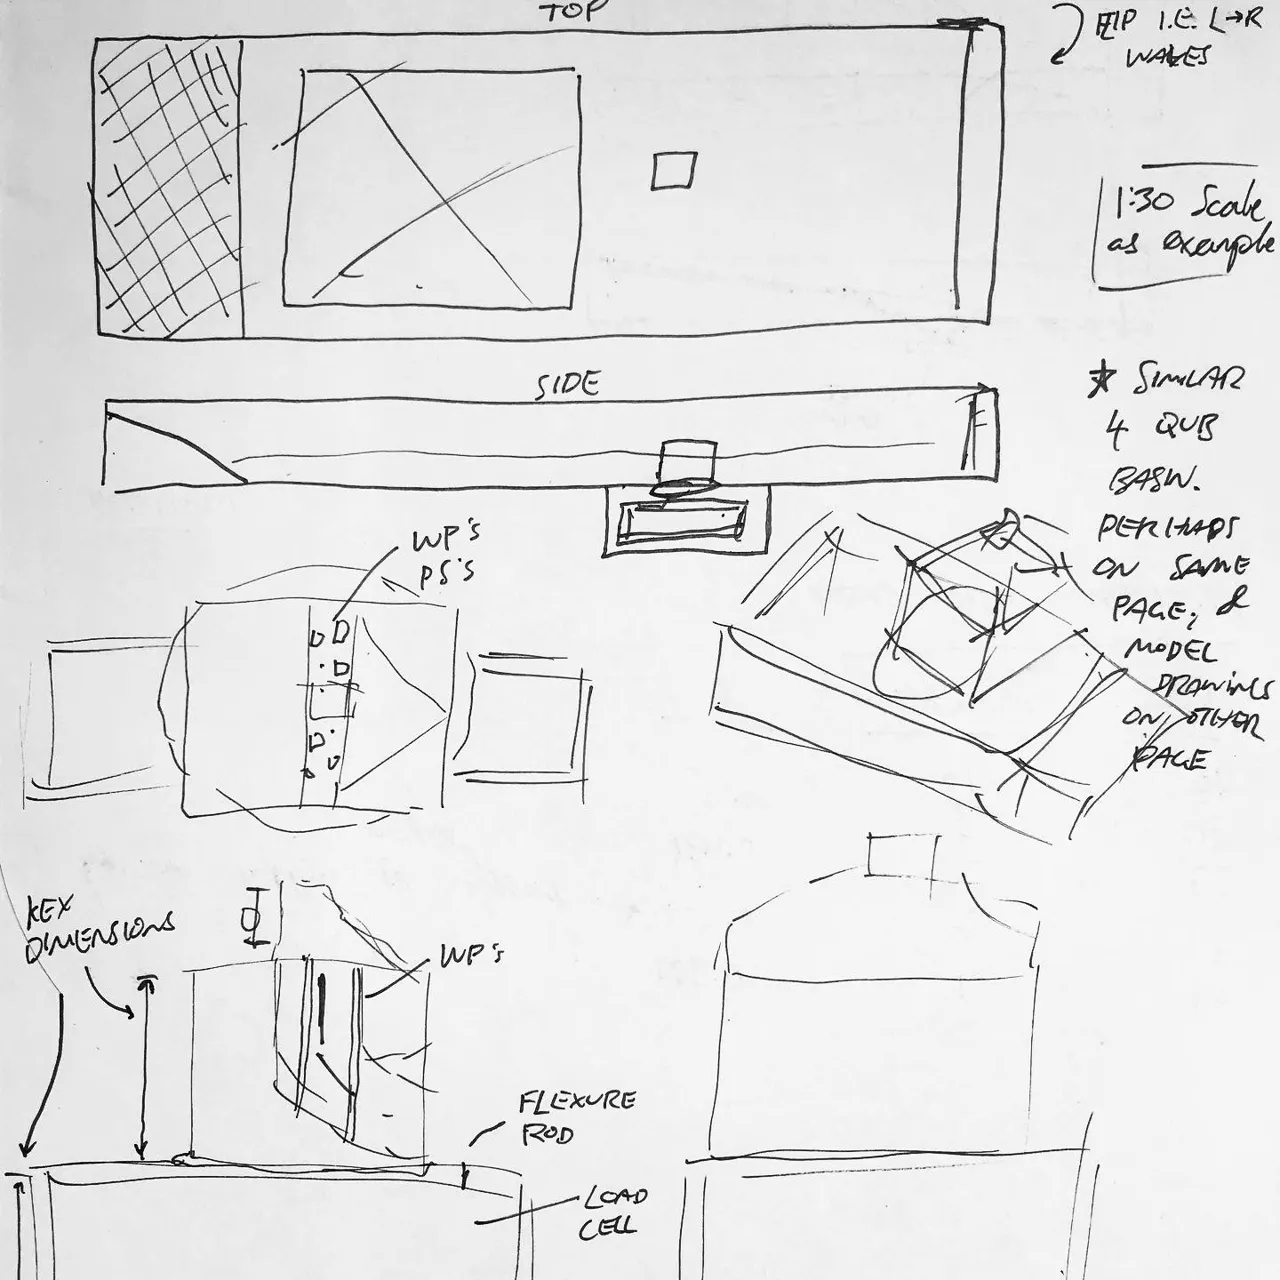 TOP
FLIP I.E. L→R
WAVES
1:30 Scale
as example
SIDE
★ SIMILAR
4 QUB
BASIN.
PERHAPS
ON SAME
PAGE, &
MODEL
DRAWINGS
ON OTHER
PAGE
WP's
PS's
KEY
DIMENSIONS
WP's
FLEXURE
ROD
LOAD
CELL